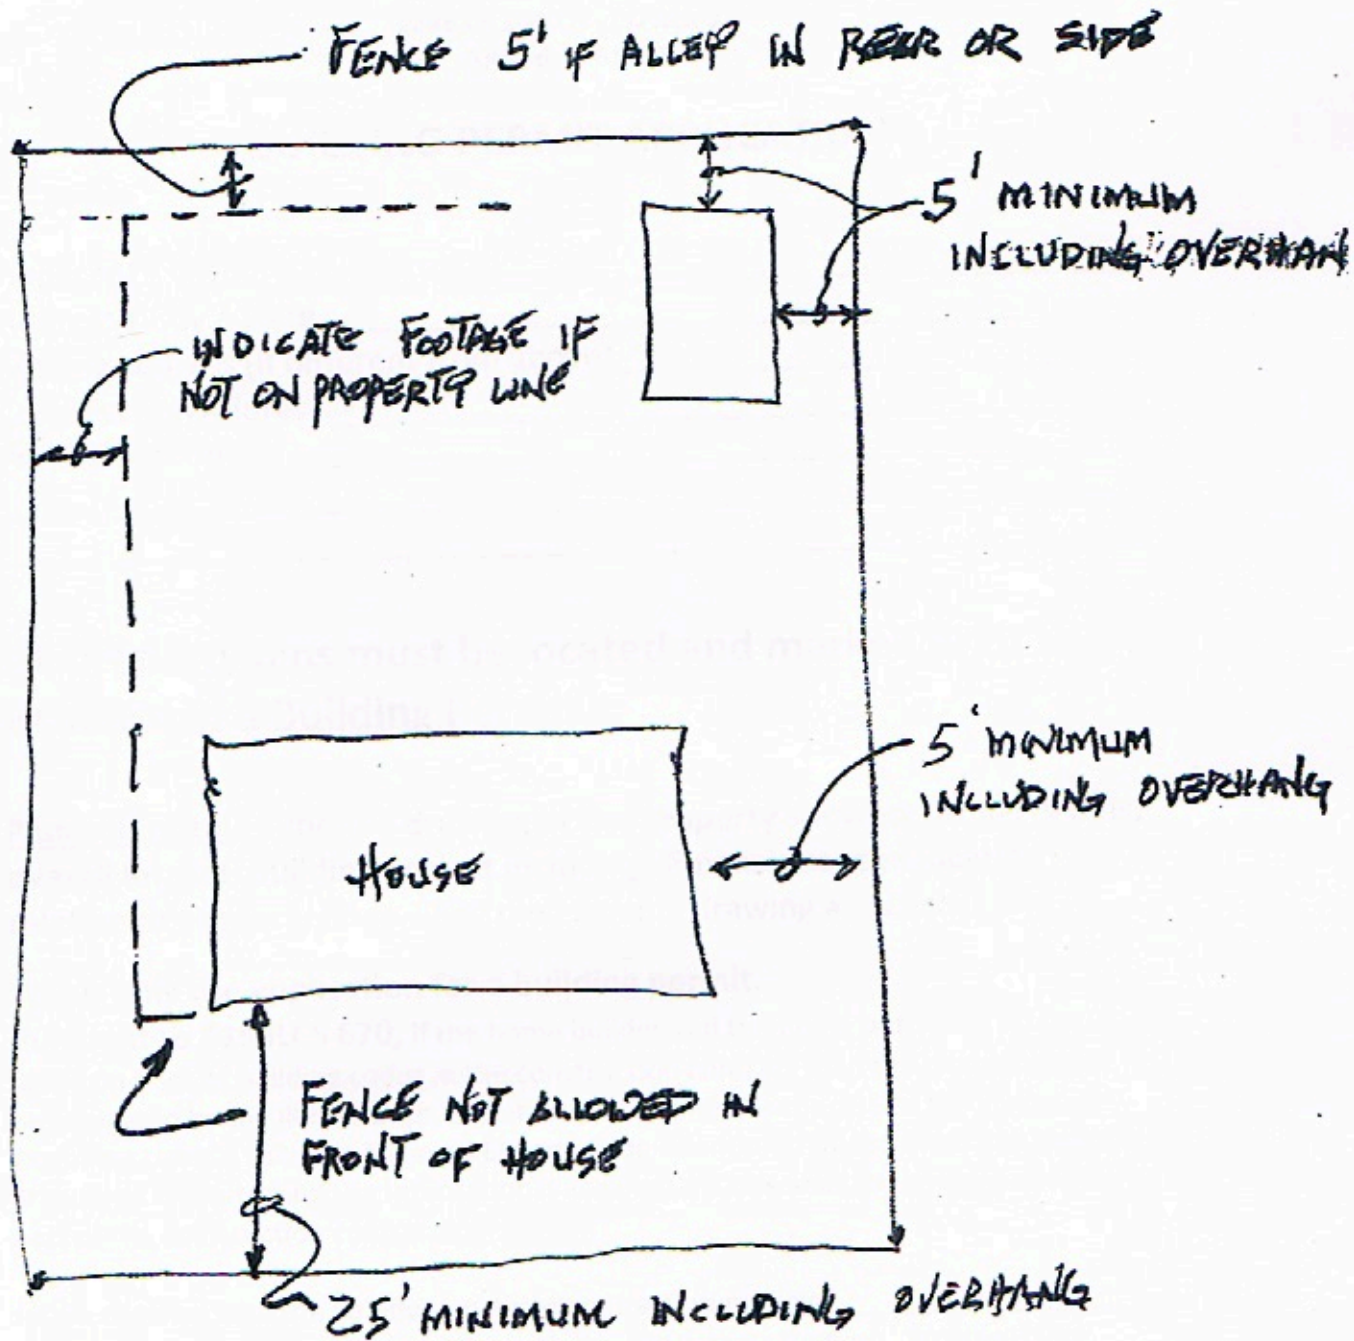 FENCE 5' IF ALLEY IN REAR OR SIDE
5' MINIMUM
INCLUDING OVERHAN
INDICATE FOOTAGE IF
NOT ON PROPERTY LINE
5' MINIMUM
INCLUDING OVERHANG
HOUSE
FENCE NOT ALLOWED IN
FRONT OF HOUSE
25' MINIMUM INCLUDING OVERHANG